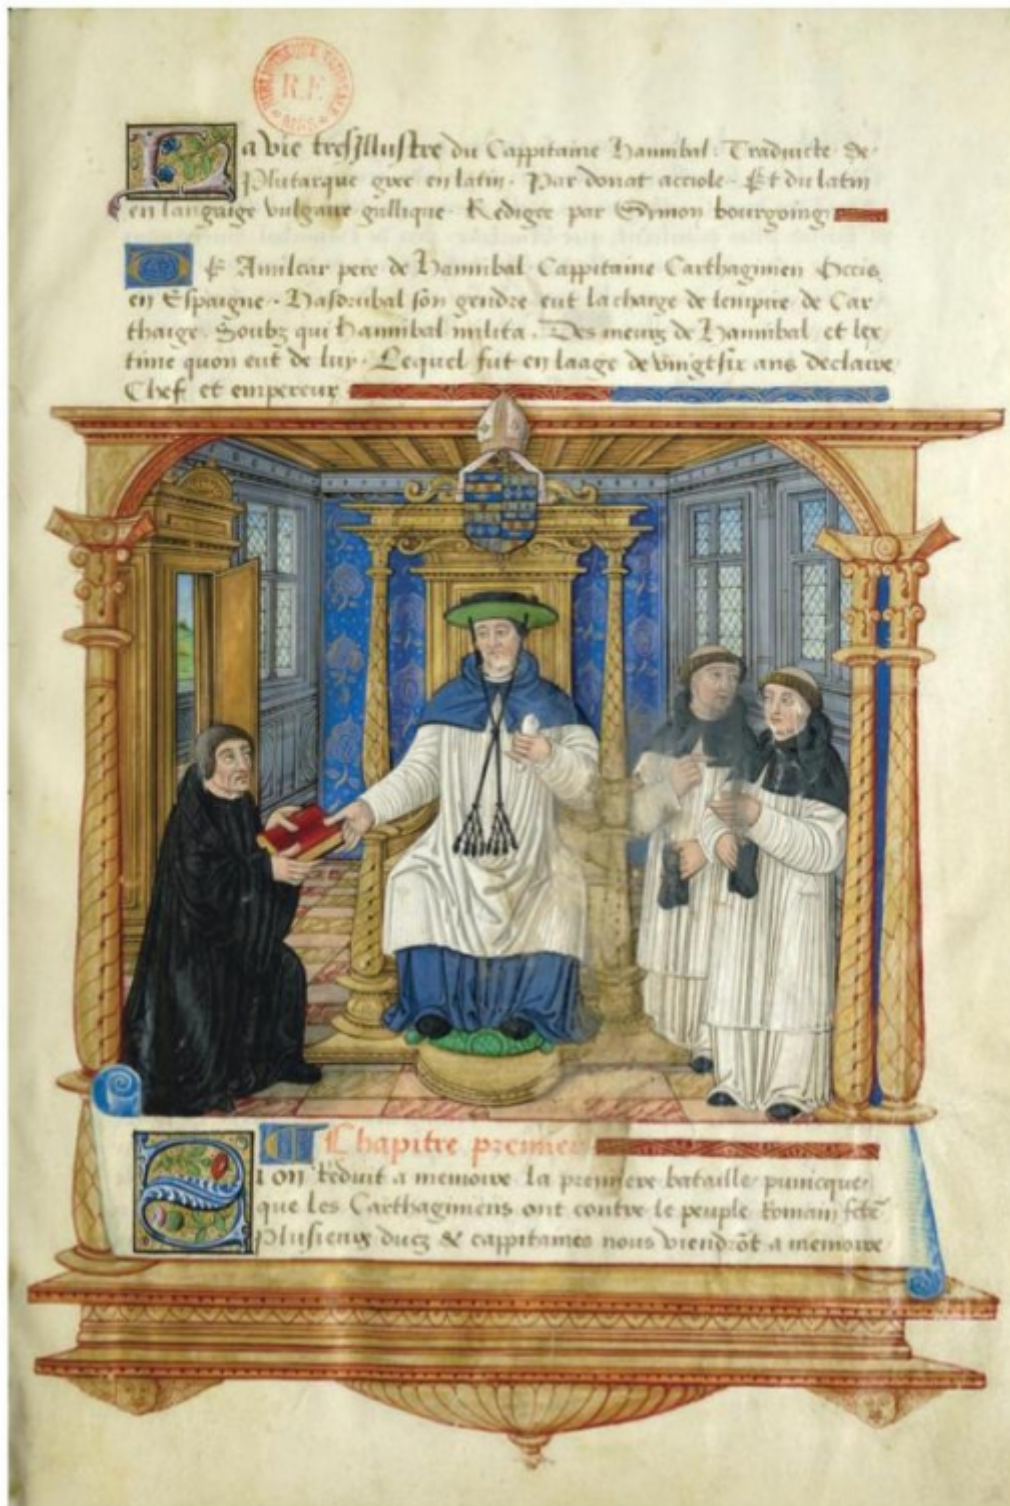 BIBLIOTHEQUE NATIONALE
R.F.
MSS
La vie tresillustre du Cappitaine Hannibal. Traduicte de
Plutarque grec en latin. Par donat acciole. Et du latin
en langaige vulgaire gallique. Redigee par Symon bourgoing
De Amilcar pere de Hannibal Cappitaine Carthaginien Occis
en Espaigne. Hasdrubal son gendre eut la charge de lempire de Car
thaige. Soubz qui hannibal milita. Des meurs de Hannibal et lex
time quon eut de luy. Lequel fut en laage de vingtsix ans declaire
Chef et empereur
Chapitre premier
Si on Reduit a memoire la premiere bataille punicque
que les Carthaginiens ont contre le peuple Romain fcte
Plusieurs ducz & cappitaines nous viendrõt a memoire